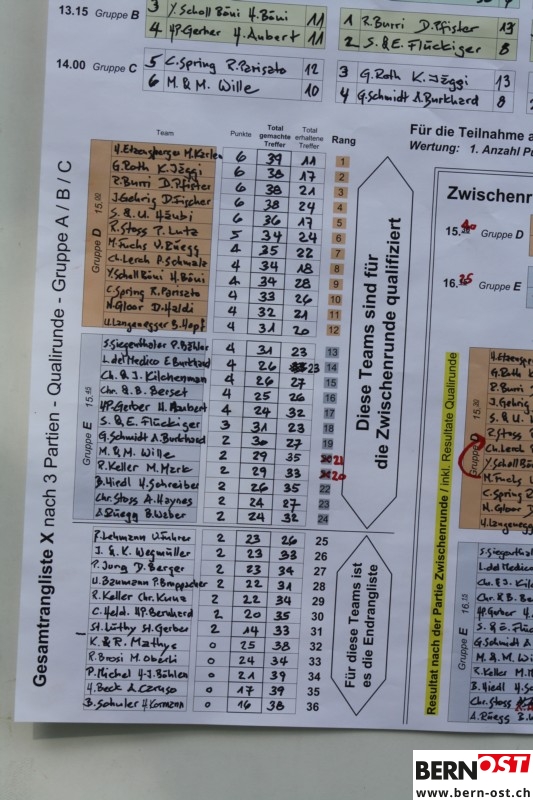 13.15 Gruppe B
3 Y. Scholl Böni H. Böni 11
4 HP. Gerber H. Aubert 11
1 R. Burri D. Pfister 13
2 S. & E. Flückiger 8
14.00 Gruppe C
5 C. Spring R. Parisato 12
6 M. & M. Wille 10
3 G. Roth K. Jäggi 13
4 G. Schmidt A. Burkhard 8
Gesamtrangliste X nach 3 Partien - Qualirunde - Gruppe A / B / C
Team Punkte Total gemachte Treffer Total erhaltene Treffer Rang
Gruppe D 15.00
H. Etzensperger M. Karlen 6 39 11 1
G. Roth K. Jäggi 6 38 17 2
R. Burri D. Pfister 6 38 21 3
J. Gehrig D. Fischer 6 38 24 4
S. & U. Häubi 6 36 17 5
R. Stoss P. Lutz 5 34 24 6
M. Fuchs V. Rüegg 4 35 22 7
Ch. Lerch P. Schmalz 4 34 18 8
Y. Scholl Böni H. Böni 4 34 28 9
C. Spring R. Parisato 4 33 26 10
H. Gloor D. Haldi 4 32 21 11
U. Langenegger B. Hopf 4 31 20 12
Gruppe E 15.45
S. Siegenthaler P. Bühler 4 31 23 13
L. del Medico E. Burkhard 4 26 23 14
Ch. & J. Kilchenman 4 26 27 15
Chr. & B. Berset 4 25 26 16
HP. Gerber H. Aubert 4 24 32 17
S. & E. Flückiger 3 31 23 18
G. Schmidt A. Burkhard 2 30 27 19
M. & M. Wille 2 29 35 21
P. Keller M. Mark 2 29 33 20
B. Hirdl H. Schreiber 2 26 35 22
Chr. Stoss A. Haynes 2 24 27 23
A. Rüegg B. Weber 2 24 32 24
P. Lehmann U. Fuhrer 2 23 26 25
J. & K. Wegmüller 2 23 33 26
P. Jung D. Berger 2 23 34 27
U. Baumann P. 2 22 31 28
R. Keller Chr. Kunz 2 22 34 29
C. Held HP. Bernhard 2 20 35 30
St. Lüthy St. Gerber 2 14 33 31
K. & R. Mathys 0 25 38 32
R. Brosi M. Oberli 0 24 34 33
P. Michel H.J. Bühlen 0 21 39 34
H. Beck A. Caruso 0 17 39 35
B. Schuler H. 0 16 38 36
Diese Teams sind für
die Zwischenrunde qualifiziert
Für diese Teams ist
es die Endrangliste
Für die Teilnahme a
Wertung: 1. Anzahl Pu
Zwischenr
15. Gruppe D
16. 25 Gruppe E
Resultat nach der Partie Zwischenrunde / inkl. Resultate Qualirunde
Gruppe D 15.00
H. Etzensper
G. Roth K
R. Burri
J. Gehrig
S. & U.
R. Stoss P
Ch. Lerch
Y. Scholl Bö
M. Fuchs V
C. Spring
H. Gloor D
U. Langeneg
Gruppe E 16.15
S. Siegentha
L. del Medi
Ch. & J. Kil
Chr. & B. Be
HP. Gerber H
S. & E. Flü
G. Schmidt A
M. & M. Wi
R. Keller M
B. Hirdl H. S
Chr. Stoss
A. Rüegg B. W
BERNOST
www.bern-ost.ch